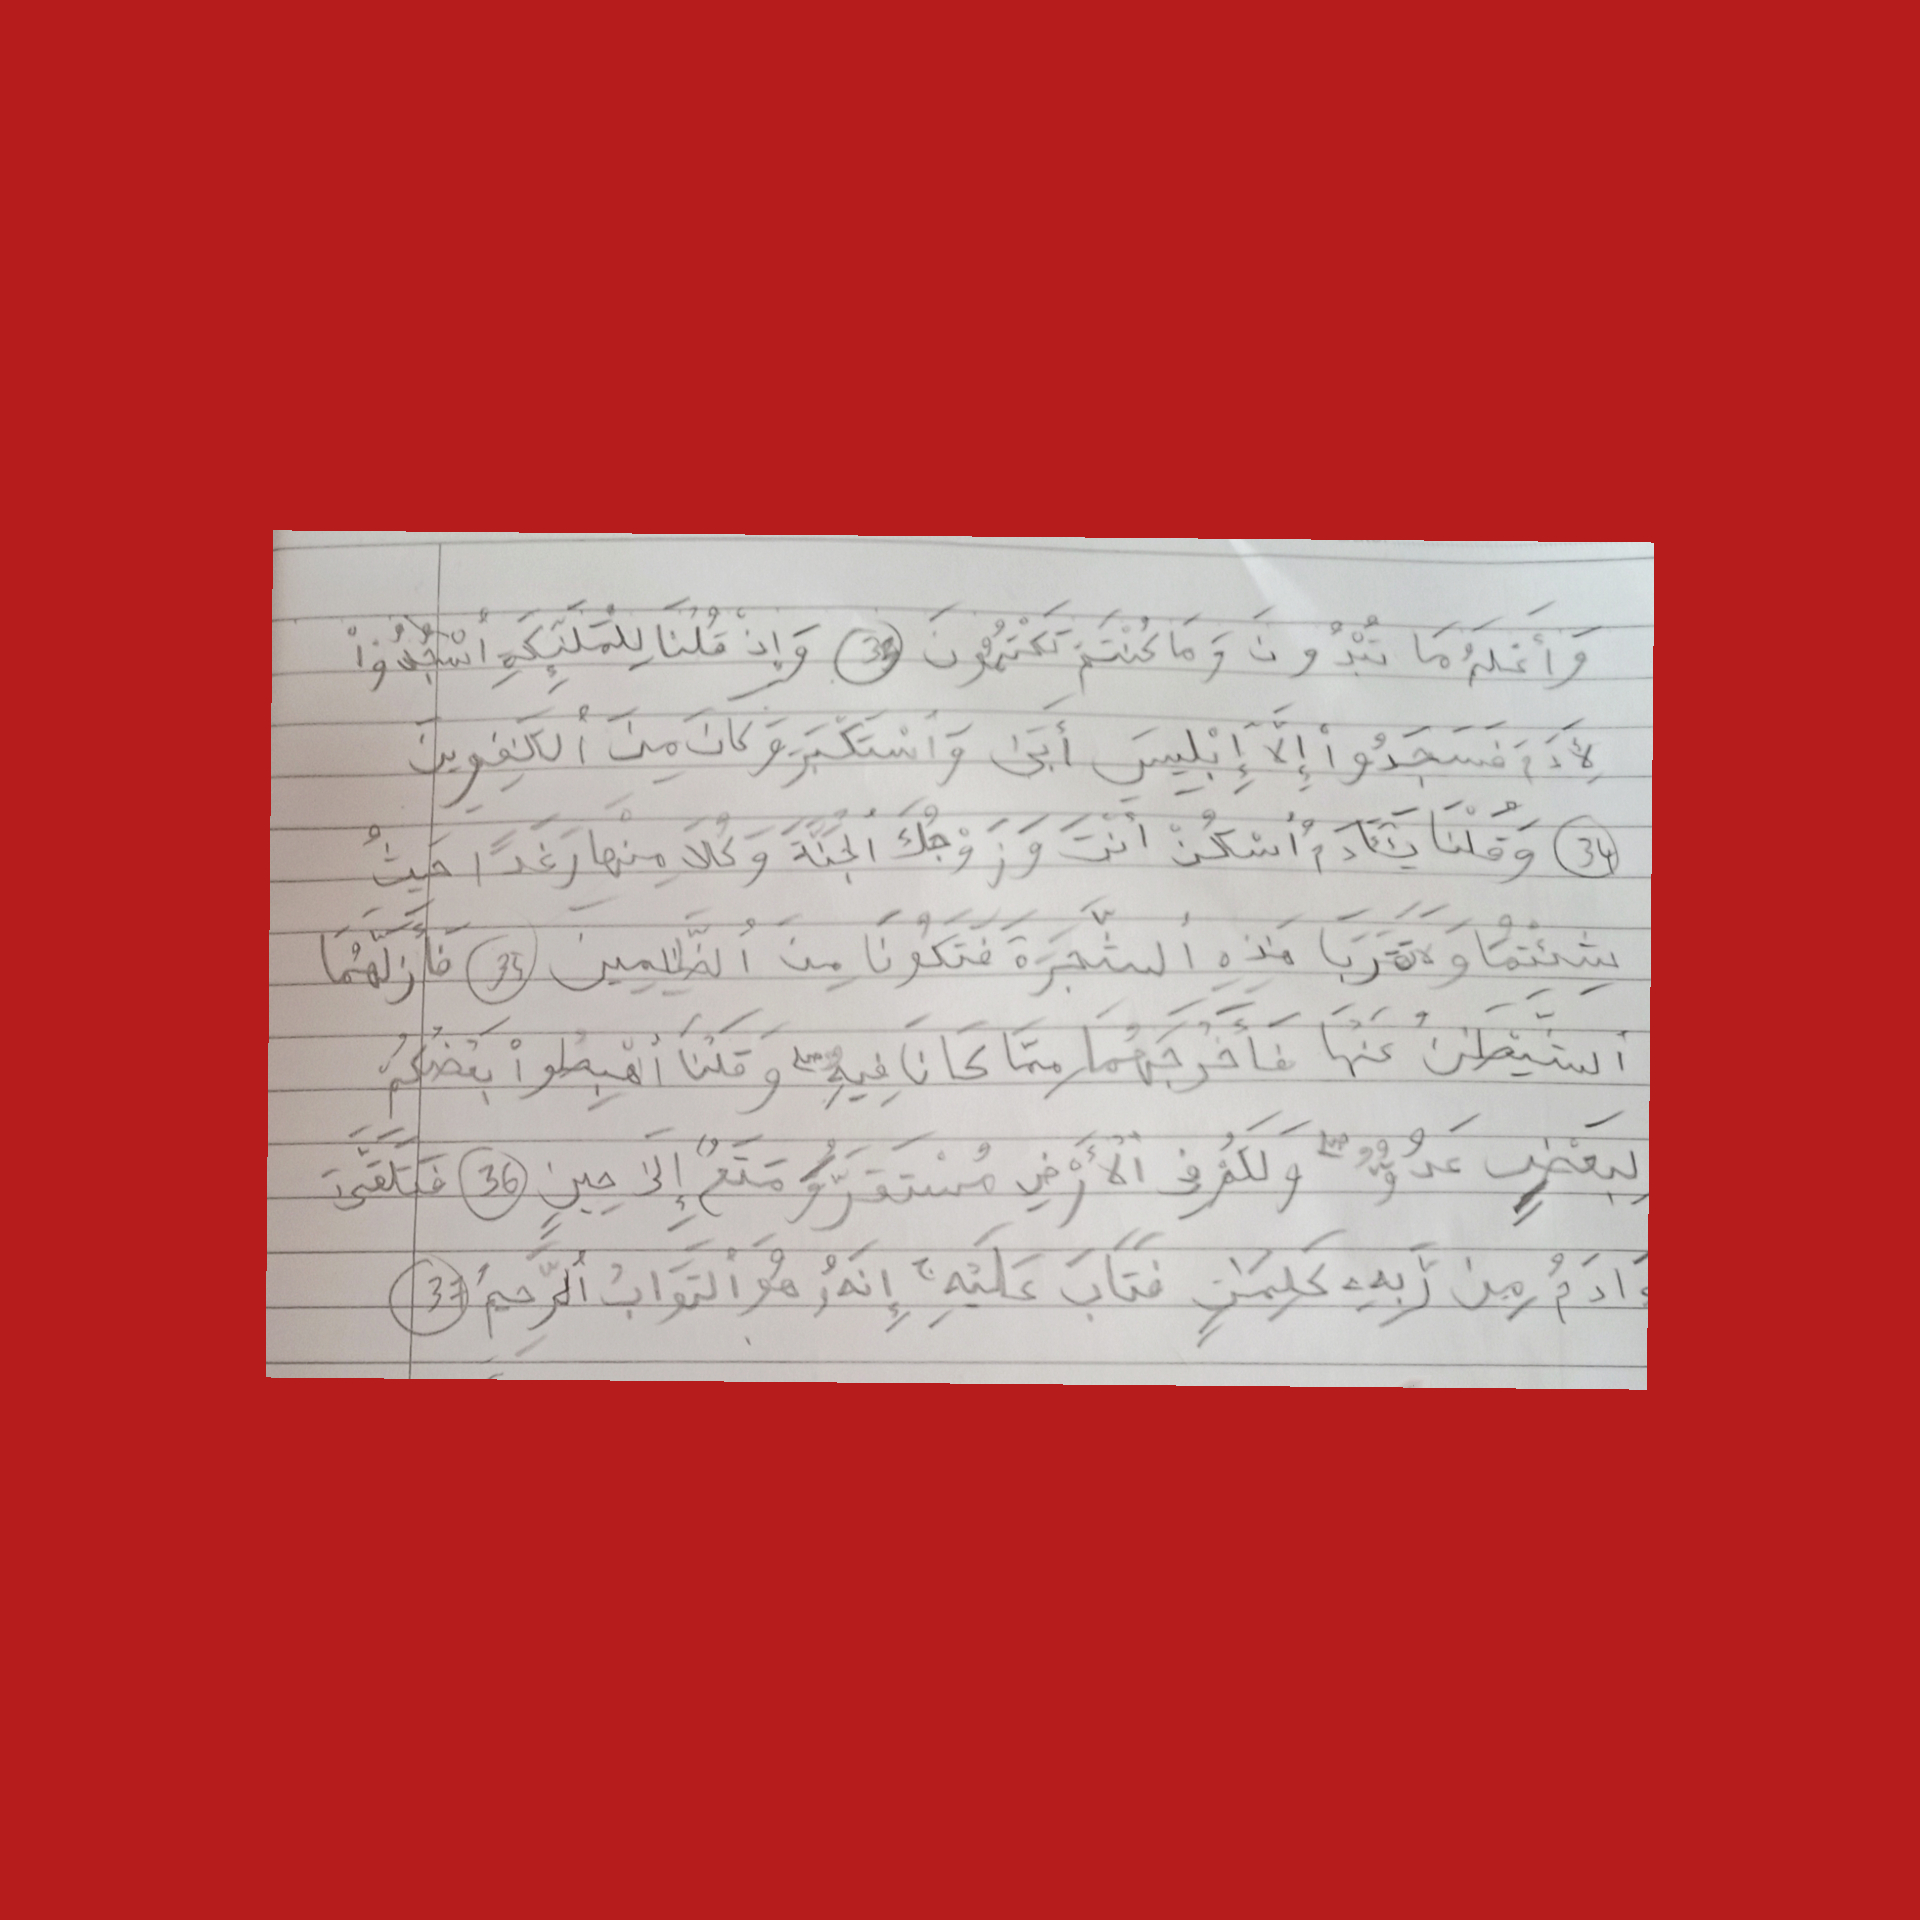 وَأَعْلَمُ مَا تُبْدُونَ وَمَا كُنْتُمْ تَكْتُمُونَ (33) وَإِذْ قُلْنَا لِلْمَلَٰٓئِكَةِ ٱسْجُدُوا۟
لِأَدَمَ فَسَجَدُوا۟ إِلَّآ إِبْلِيسَ أَبَىٰ وَٱسْتَكْبَرَ وَكَانَ مِنَ ٱلْكَٰفِرِينَ
(34) وَقُلْنَا يَٰٓـَٔادَمُ ٱسْكُنْ أَنْتَ وَزَوْجُكَ ٱلْجَنَّةَ وَكُلَا مِنْهَا رَغَدًا حَيْثُ
شِئْتُمَا وَلَا تَقْرَبَا هَٰذِهِ ٱلشَّجَرَةَ فَتَكُونَا مِنَ ٱلظَّٰلِمِينَ (35) فَأَزَلَّهُمَا
ٱلشَّيْطَٰنُ عَنْهَا فَأَخْرَجَهُمَا مِمَّا كَانَا فِيهِ ۖ وَقُلْنَا ٱهْبِطُوا۟ بَعْضُكُمْ
لِبَعْضٍ عَدُوٌّ ۖ وَلَكُمْ فِى ٱلْأَرْضِ مُسْتَقَرٌّ وَمَتَٰعٌ إِلَىٰ حِينٍ (36) فَتَلَقَّىٰٓ
ءَادَمُ مِن رَّبِّهِۦ كَلِمَٰتٍ فَتَابَ عَلَيْهِ ۚ إِنَّهُۥ هُوَ ٱلتَّوَّابُ ٱلرَّحِيمُ (37)